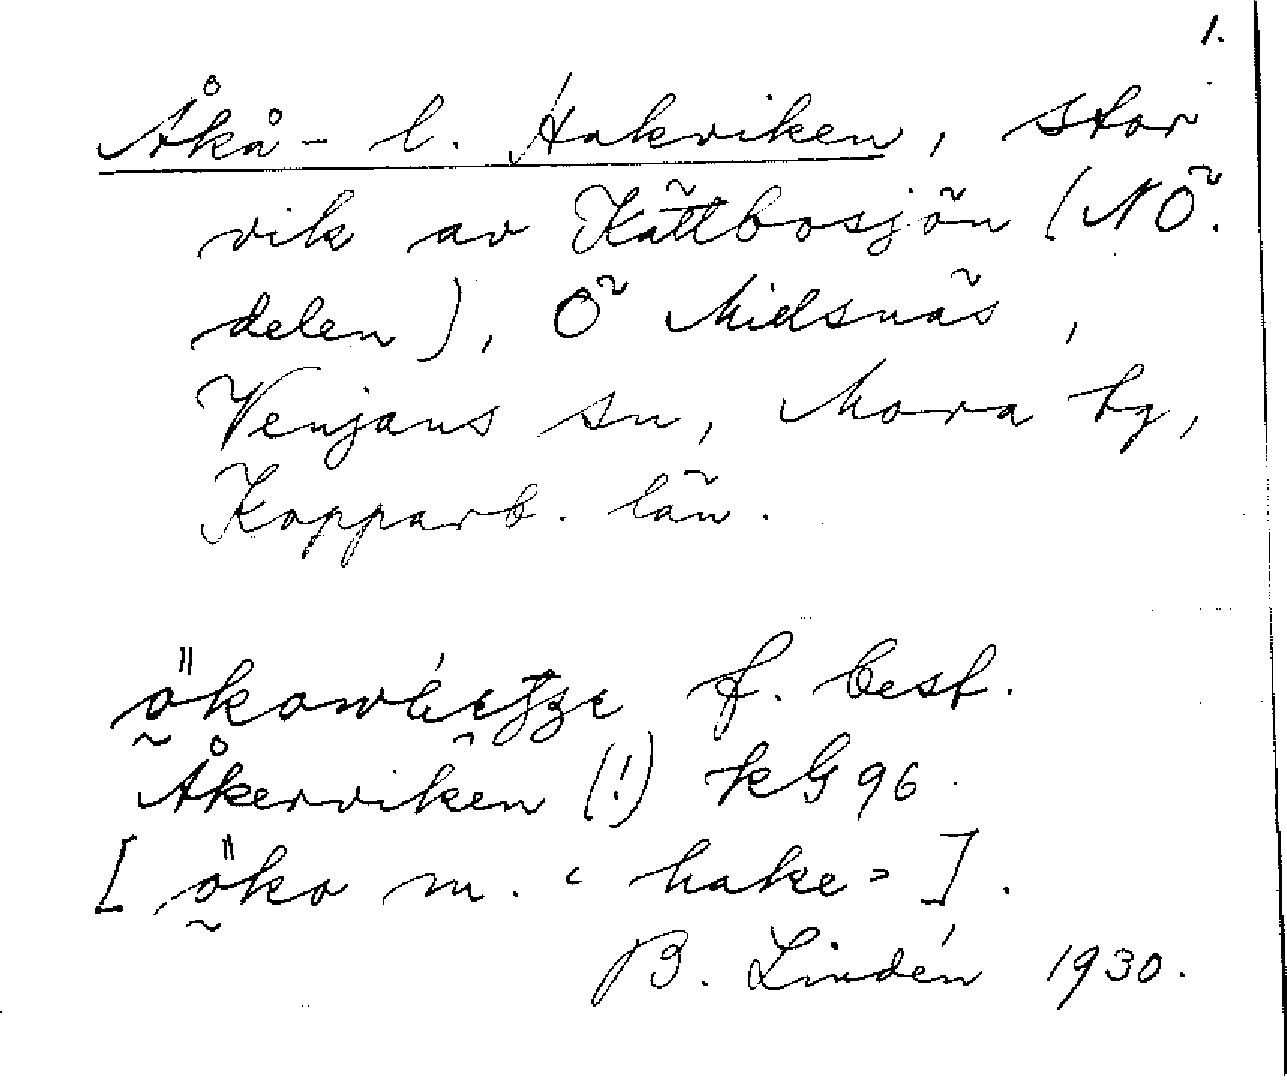 1.
Åkå- l. Hakviken, stor
vik av Kättbosjön (NÖ.
delen), Ö Midsnäs,
Venjans sn, Mora tg,
Kopparb. län.
f. best.
Åkerviken (!) kG 96.
[ ö̃ko m. "hake" ].
B. Lindén 1930.